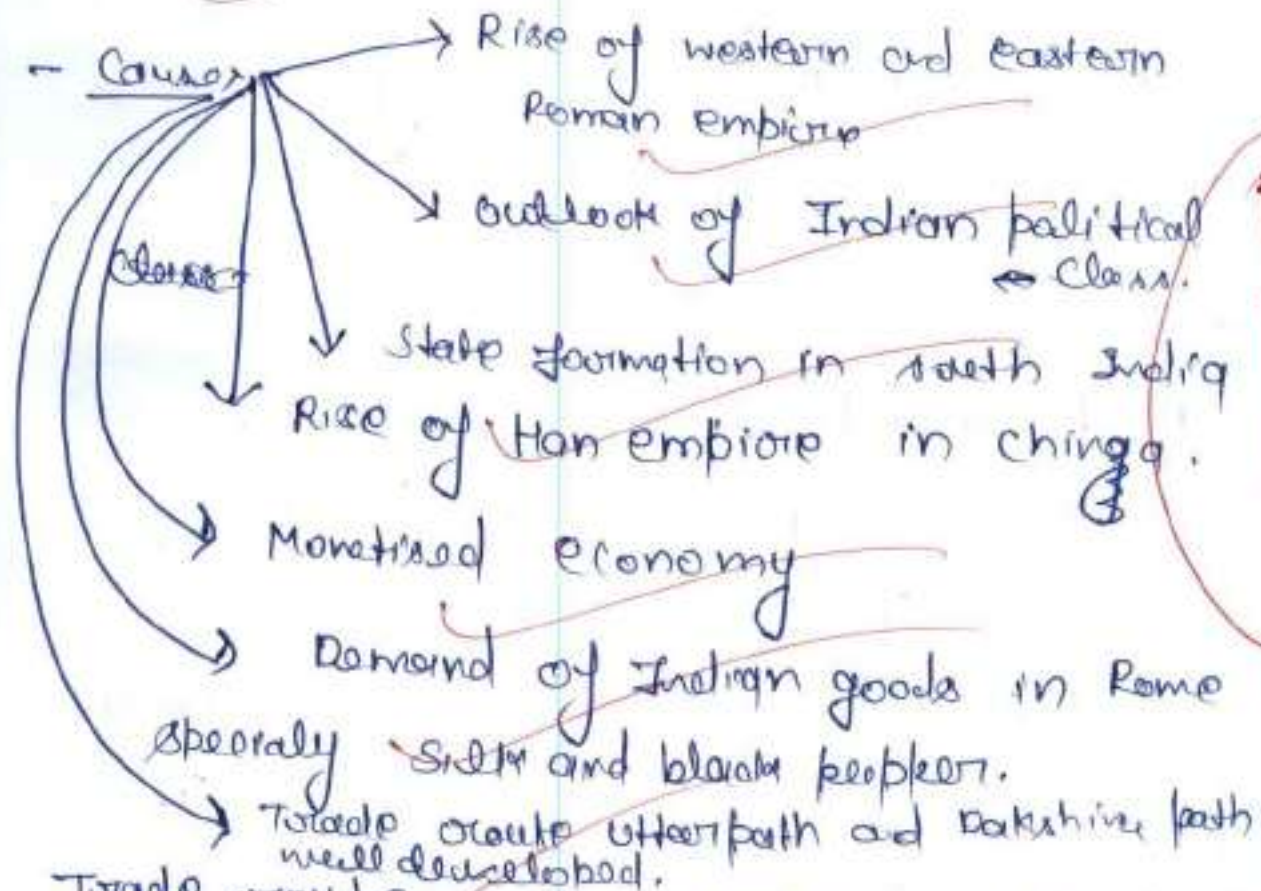 - Causes
Rise of western and eastern
Roman empire
Outlook of Indian political
Class.
State formation in south India
Rise of Han empire in china.
Monetised economy
Demand of Indian goods in Rome
specialy Silk and black pepper.
Trade route utterpath and Dakshina path
well developed.
Trade